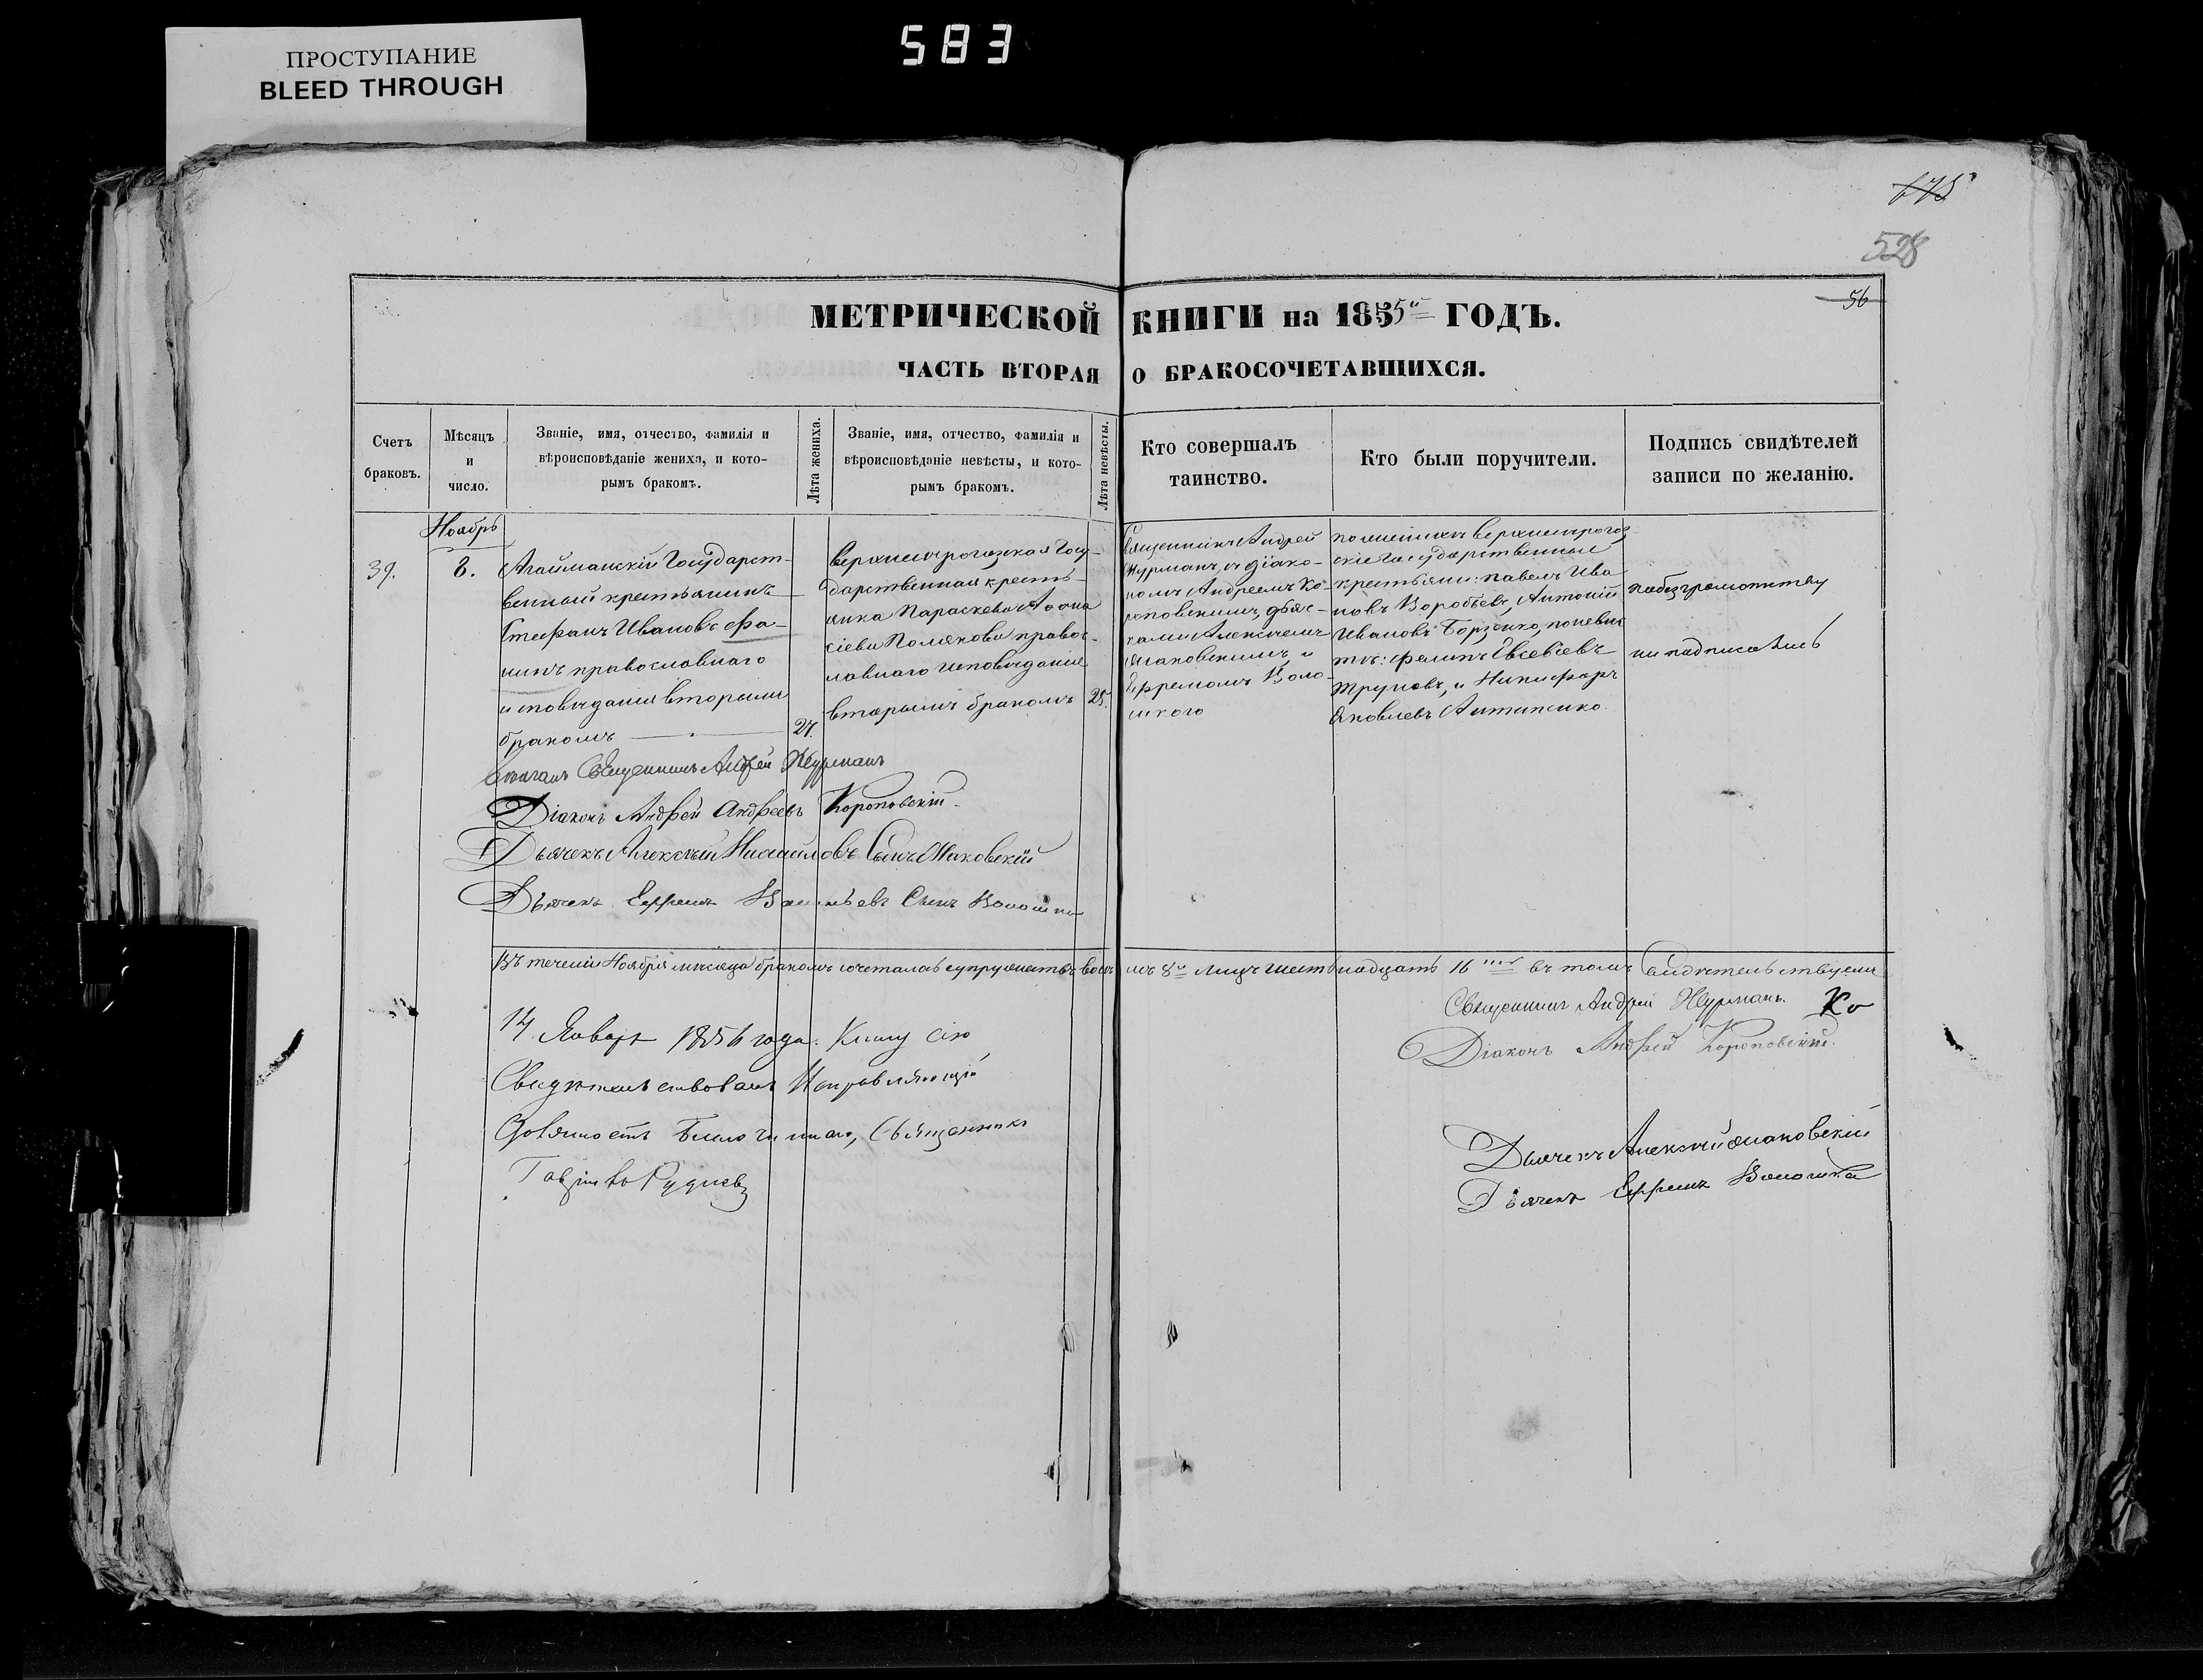 ПРОСТУПАНИЕ
BLEED THROUGH
583
675
528
56
МЕТРИЧЕСКОЙ КНИГИ на 1855й ГОДЪ.
ЧАСТЬ ВТОРАЯ О БРАКОСОЧЕТАВШИХСЯ.
Счетъ
браковъ.
Мѣсяцъ
и
число.
Званіе, имя, отчество, фамилія и
вѣроисповѣданіе жениха, и кото-
рымъ бракомъ.
Лѣта жениха.
Званіе, имя, отчество, фамилія и
вѣроисповѣданіе невѣсты, и кото-
рымъ бракомъ.
Лѣта невѣсты.
Кто совершалъ
таинство.
Кто были поручители.
Подпись свидѣтелей
записи по желанію.
Ноябрь
39.
8.
Агайманскій Государст-
венный крестьянинъ
Стефанъ Ивановъ Фа-
нинъ православнаго
исповѣданія вторымъ
бракомъ
27.
Верхнерогозская Госу-
дарственная кресть-
янка Параскева Афона
сіева Полякова правос-
лавнаго исповѣданія
вторымъ бракомъ
25.
Священникъ Андрей
Журманъ, съ діако-
номъ Андреемъ Ко-
роповскимъ, дьяч-
ками Алексѣемъ
Маковскимъ, и
Ефремомъ Воло-
шкого
по женихѣ верхнерогоз-
скіе государственные
крестьяне: павелъ Ива
новъ Воробьевъ, Антоній
Ивановъ Борзенко, поневѣс
тѣ: филипъ Евсевіевъ
Труновъ, и Никифоръ
Яковлевъ Антипенко.
побезграмотству
не подписались
Вѣнчалъ Священникъ Андрей Журманъ
Діаконъ Андрей Андреевъ Короповскій.
Дьячекъ Алексѣй Михайловъ Сынъ Маковскій
Дьячекъ Ефремъ Васильевъ Сынъ Волошка
Въ теченіи Ноября мѣсяца бракомъ сочеталось супружествъ восемь 8ъ лицъ шестьнадцать 16 въ томъ Свидѣтельствуемъ
Священникъ Андрей Журманъ. Ко
Діаконъ Андрей Короповскій.
Дьячекъ Алексѣй Маковскій
Дьячекъ Ефремъ Волошка
14 Январь 1856 года. Книгу сію
Свидѣтельствовалъ Исправляющій
Должность Благочиннаго, Священникъ
Гавріилъ Рудневъ